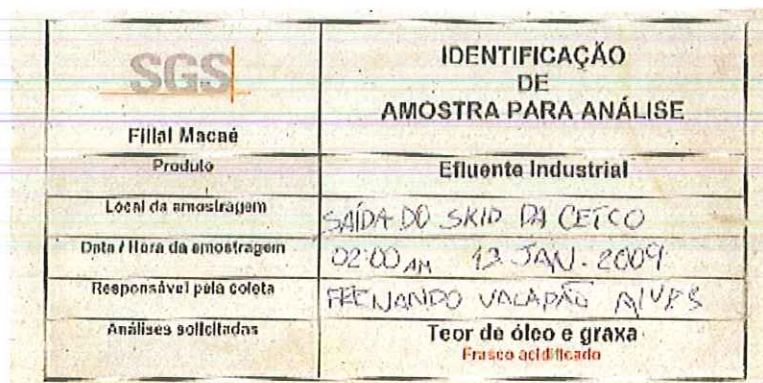 SGS
Filial Macaé
IDENTIFICAÇÃO
DE
AMOSTRA PARA ANÁLISE
Produto
Efluente Industrial
Local da amostragem
SAÍDA DO SKID DA CETCO
Data / Hora da amostragem
02:00 AM 13 JAN. 2009
Responsável pela coleta
FERNANDO VALADÃO ALVES
Análises solicitadas
Teor de óleo e graxa
Frasco acidificado